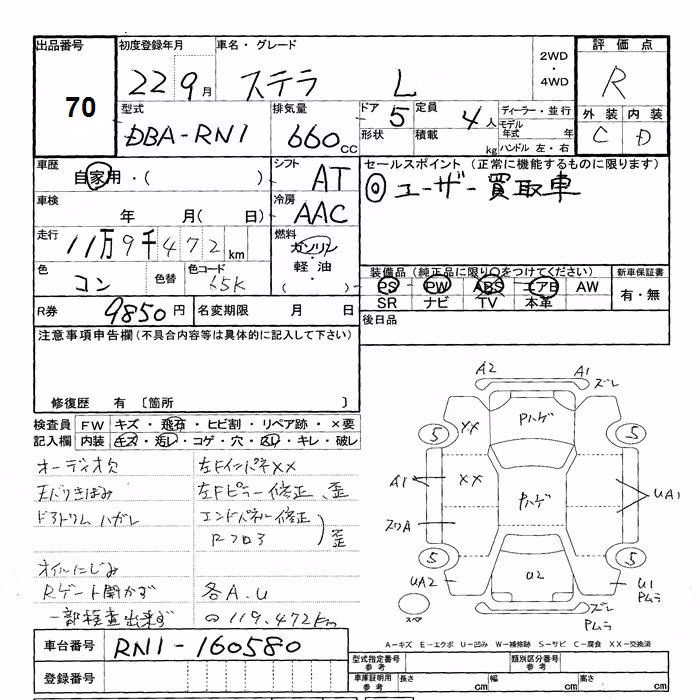 出品番号 初度登録年月 車名・グレード 2WD・4WD 評価点
70 22 9月 ステラ L R
型式 排気量 ドア 5 定員 4人 ディーラー・並行 外装 内装
DBA-RN1 660cc 形状 積載 kg モデル年式 年 C D
ハンドル 左・右
車歴 シフト セールスポイント (正常に機能するものに限ります)
自家用・( ) AT ◎ユーザー買取車
車検 冷房
年 月( 日) AAC
走行 燃料
11万9千472km ガソリン・軽油・( )
色 色替 色コード 装備品 (純正品に限り○をつけてください) 新車保証書
コン 65K PS PW ABS エアB AW 有・無
SR ナビ TV 本革
R券 9850円 名変期限 月 日 後日品
注意事項申告欄 (不具合内容等は具体的に記入して下さい)
修復歴 有 〔箇所 〕
検査員 FW キズ・飛石・ヒビ割・リペア跡・×要
記入欄 内装 キズ・汚レ・コゲ・穴・凹レ・キレ・破レ
オーディオ欠 左Fインパネ××
天バリきばみ 左Fピラー修正、歪
ドアトリムハガレ エンドパネル修正
Rフロア 歪
オイルにじみ
Rゲート開かず 各A.U
一部検査出来ず の119,472km
車台番号 RN1-160580
登録番号
A2 A1 ズレ
Pハゲ
5 XX 5
A1 XX Pハゲ UA1
5 5
UA2 U2 U1 Pムラ
スペア ズレ Pムラ
A-キズ E-エクボ U-凹み W-補修跡 S-サビ C-腐食 XX-交換済
型式指定番号 参考 類別区分番号 参考
車庫証明用 参考 長さ cm 幅 cm 高さ cm